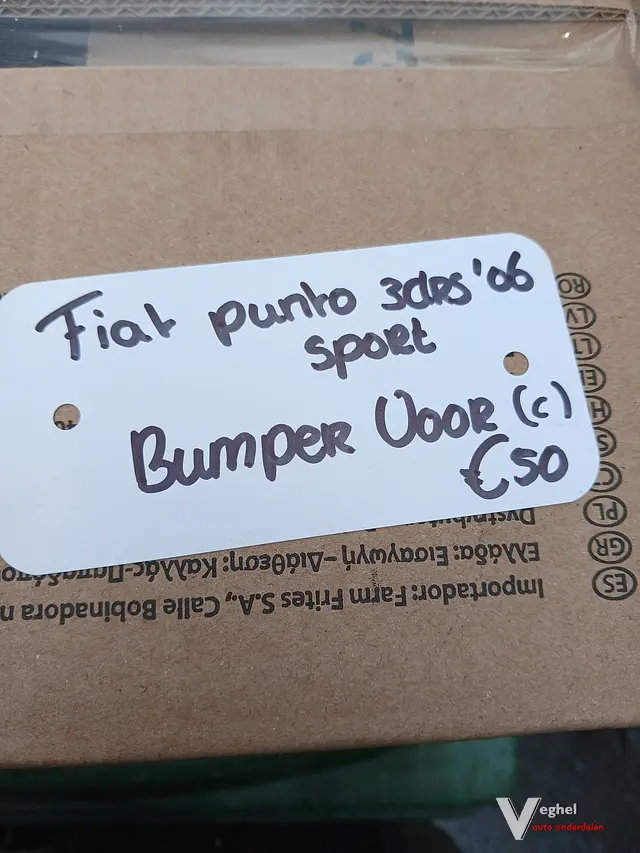 Fiat punto 3drs '06
sport
Bumper Voor (c)
€50
RO
LV
LT
PL
GR
ES
Ελλάδα: Εισαγωγή –Διάθεση: Καλλάς-
Importador: Farm Frites S.A., Calle Bobinadora
Veghel
auto onderdelen